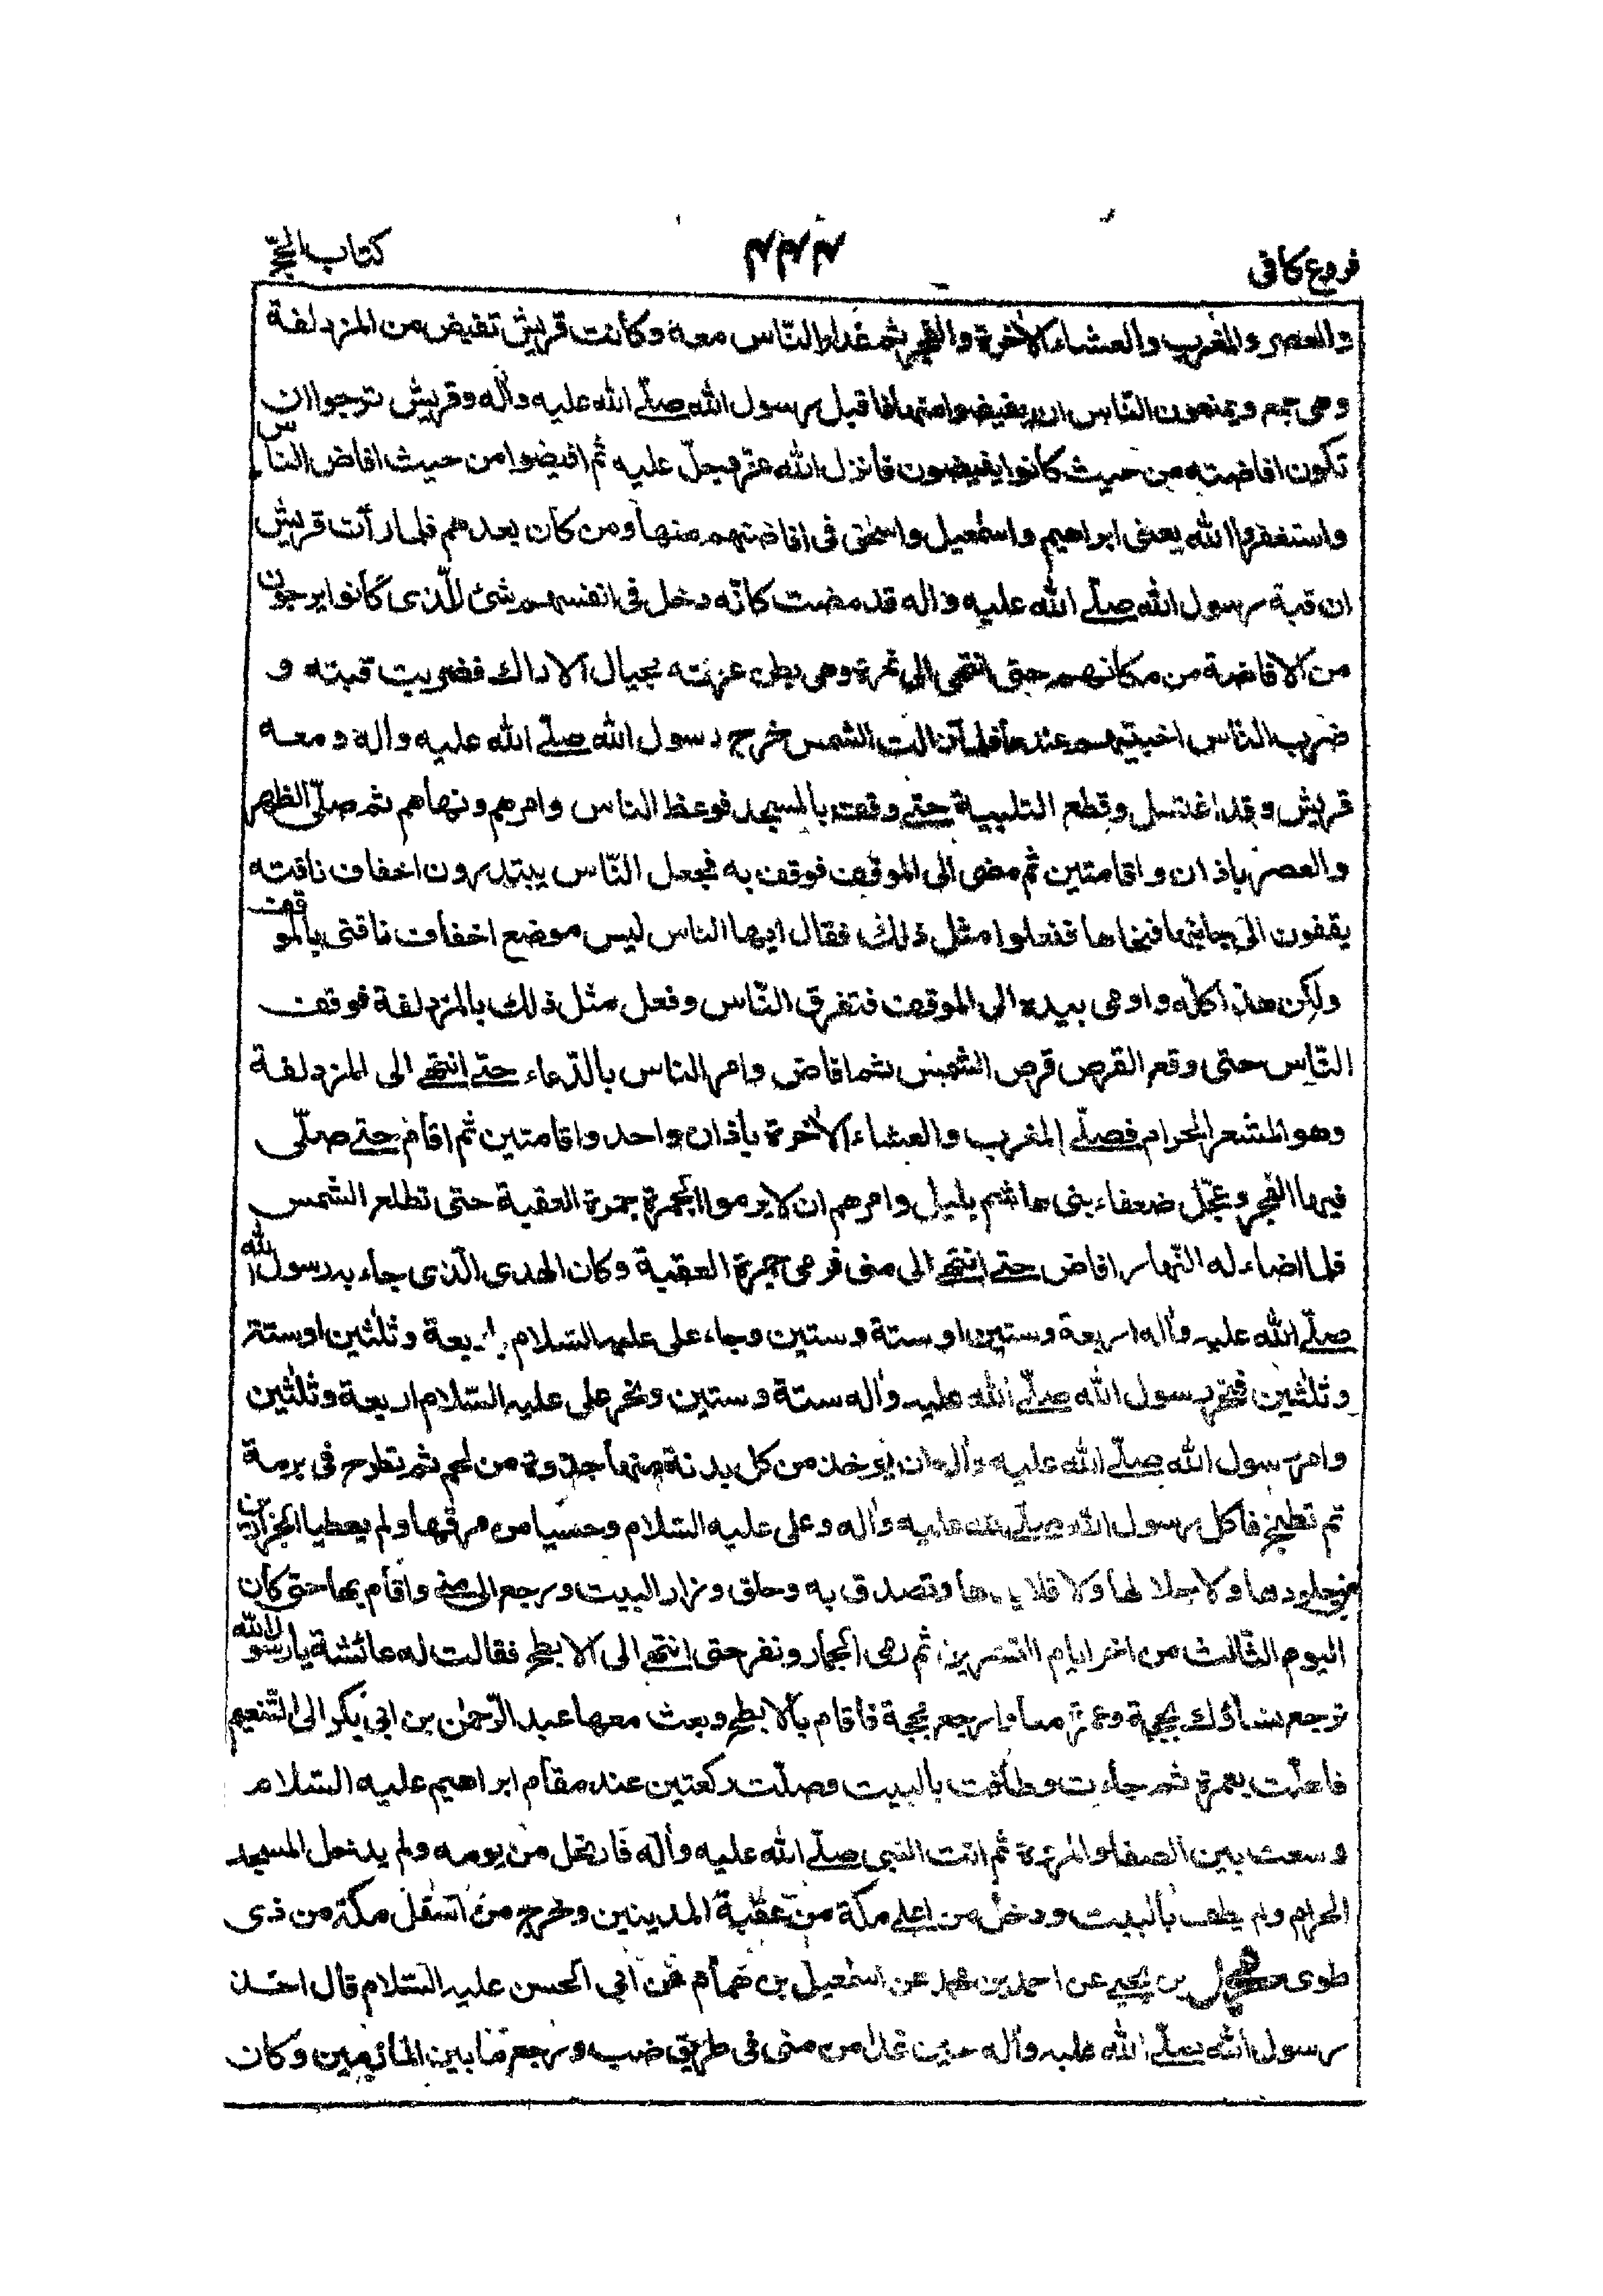 فروع كافى ۴۴۴ كتاب الحج
والعصر والمغرب والعشاء الآخرة والفجر ثم غدا والناس معه وكانت قريش تفيض من المزدلفة
وهى جمع ويمنعون الناس ان يفيضوا منها فاقبل رسول الله صلّے الله عليه وآله وقريش ترجوا ان
تكون افاضته من حيث كانوا يفيضون فانزل الله عز وجل عليه ثم افيضوا من حيث افاض الناس
واستغفروا الله يعنى ابراهيم واسمعيل واسحق فى افاضتهم منها ومن كان بعدهم فلما رأت قريش
ان قبة رسول الله صلّے الله عليه واله قد مضت كانّه دخل فى انفسهم شئ للّذى كانوا يرجون
من الافاضة من مكانهم حتى انتهى الى نمرة وهى بطن عرنته بحيال الاراك فضربت قبته و
ضرب الناس اخبيتهم عندها فلما زالت الشمس خرج رسول الله صلّے الله عليه واله ومعه
قريش وقد اغتسل وقطع التلبية حتے وقف بالمسجد فوعظ الناس وامرهم ونهاهم ثم صلّى الظهر
والعصر باذان واقامتين ثم مضى الى الموقف فوقف به فجعل النّاس يبتدرون اخفاف ناقته
يقفون الى جانبها فنحاها ففعلوا مثل ذلك فقال ايها الناس ليس موضع اخفاف ناقتى بالموقف
ولكن هذا كلّه واومى بيده الى الموقف فتفرق النّاس وفعل مثل ذلك بالمزدلفة فوقف
النّاس حتى وقع القرص قرص الشمس ثم افاض وامر الناس بالدّعاء حتے انتهے الى المزدلفة
وهو المشعر الحرام فصلّے المغرب والعشاء الآخرة باذان واحد واقامتين ثم اقام حتے صلّى
فيها الفجر وعجّل ضعفاء بنى هاشم بليل وامرهم ان لا يرموا الجمرة جمرة العقبة حتى تطلع الشمس
فلما اضاء له النّهار افاض حتے انتهے الى منى فرمى جمرة العقبة وكان الهدى الّذى جاء به رسول الله
صلّے الله عليه وآله اربعة وستين او ستة وستين وجاء على عليه السّلام باربعة وثلثين او ستة
وثلثين فنحر رسول الله صلّے الله عليه وآله ستة وستين ونحر على عليه السّلام اربعة وثلثين
وامر رسول الله صلّے الله عليه وآله ان يؤخذ من كل بدنة منها جذوة من لحم ثم تطرح فى برمة
ثم تطبخ فاكل رسول الله صلّے الله عليه وآله وعلى عليه السّلام وحسيا من مرقها ولم يعطيا الجزارين
جلودها ولا جلالها ولا قلايدها وتصدق به وحلق وزار البيت ورجع الى منى واقام بها حتى كان
اليوم الثّالث من اخر ايام التشريق ثم رمى الجمار ونفر حتى انتهے الى الابطح فقالت له عائشة يا رسول الله
ترجع نساؤك بحجة وعمرة معا وارجع بحجة فاقام بالابطح وبعث معها عبد الرّحمن بن ابى بكر الى التّنعيم
فاهلّت بعمرة ثم جاءت وطافت بالبيت وصلّت ركعتين عند مقام ابراهيم عليه السّلام
وسعت بين الصفا والمروة ثم اتت النبى صلّے الله عليه وآله فارتحل من يومه ولم يدخل المسجد
الحرام ولم يطف بالبيت ودخل من اعلے مكّة من عقبة المدينين وخرج من اسفل مكّة من ذى
طوى محمد بن يحيى عن احمد بن محمد عن اسمعيل بن همام عن ابى الحسن عليه السّلام قال اخذ
رسول الله صلّے الله عليه وآله حين غدا من منى فى طريق ضب ورجع ما بين المأزمين وكان